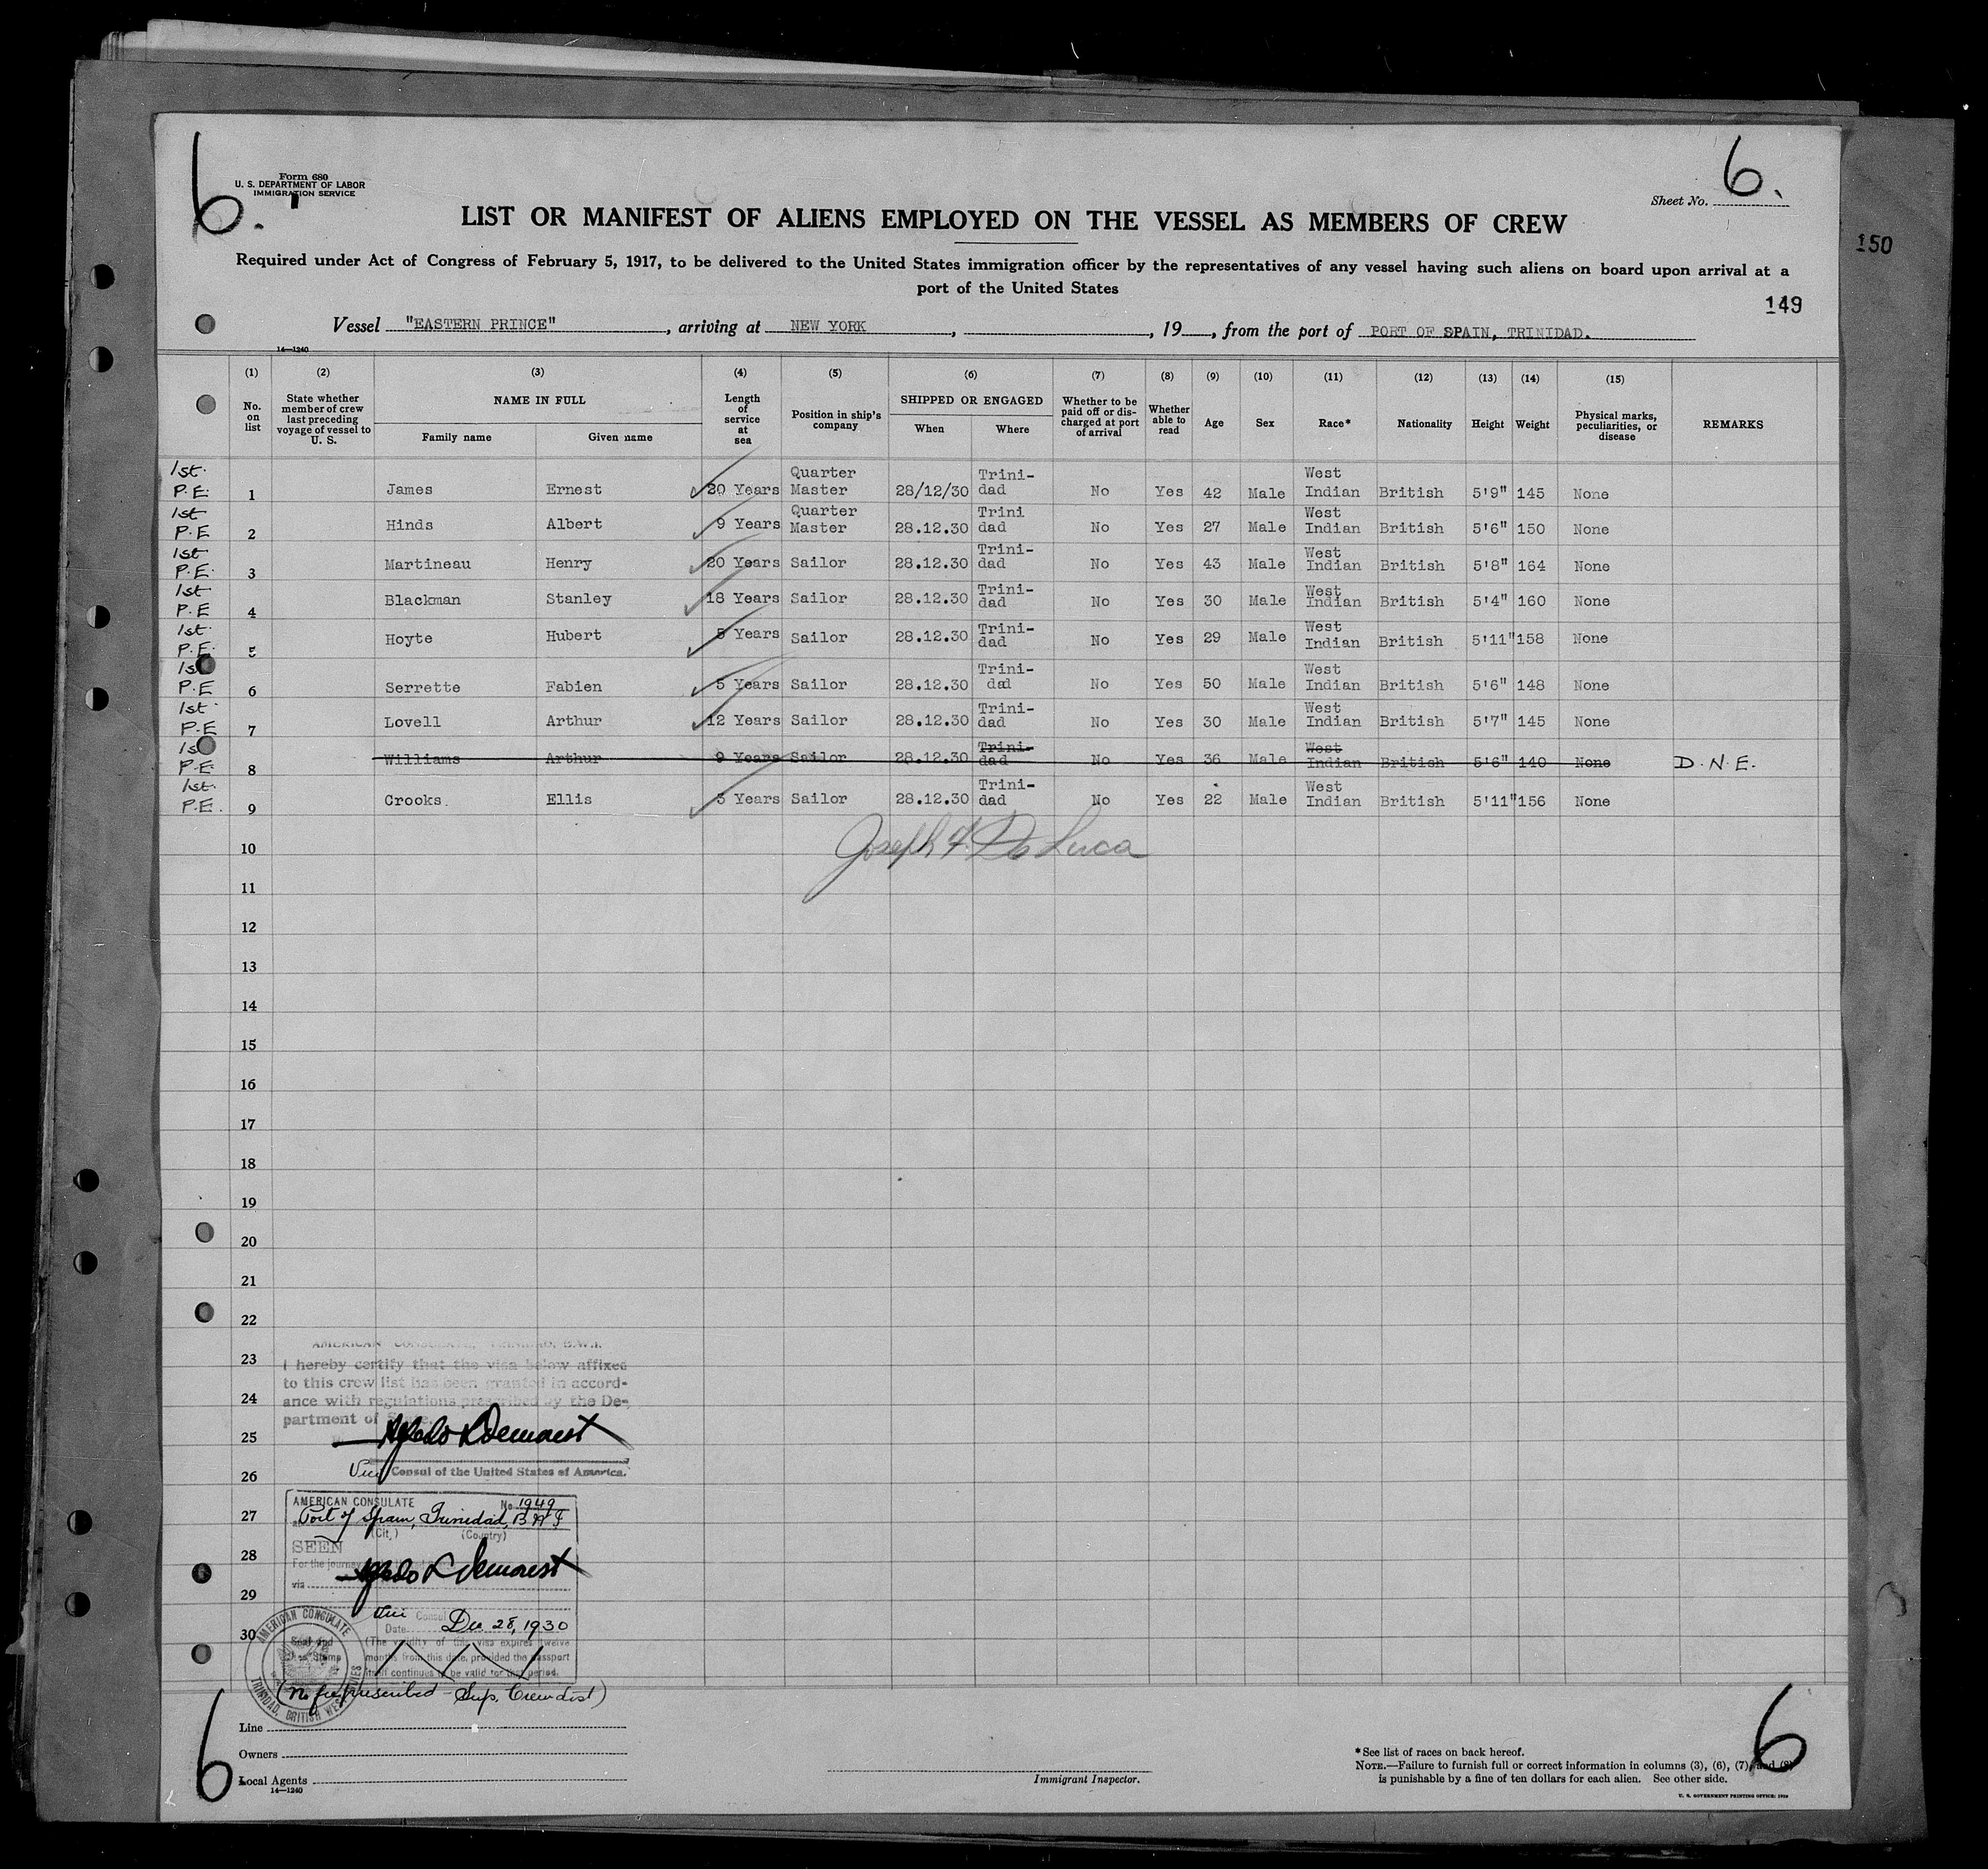 6.
Form 680
U. S. DEPARTMENT OF LABOR
IMMIGRATION SERVICE
Sheet No. 6.
LIST OR MANIFEST OF ALIENS EMPLOYED ON THE VESSEL AS MEMBERS OF CREW
150
Required under Act of Congress of February 5, 1917, to be delivered to the United States immigration officer by the representatives of any vessel having such aliens on board upon arrival at a
port of the United States
149
Vessel "EASTERN PRINCE", arriving at NEW YORK, , 19 , from the port of PORT OF SPAIN, TRINIDAD.
14—1240
(1) (2) (3) (4) (5) (6) (7) (8) (9) (10) (11) (12) (13) (14) (15)
No. on list State whether member of crew last preceding voyage of vessel to U. S. NAME IN FULL Family name Given name Length of service at sea Position in ship's company SHIPPED OR ENGAGED When Where Whether to be paid off or discharged at port of arrival Whether able to read Age Sex Race* Nationality Height Weight Physical marks, peculiarities, or disease REMARKS
1st. P.E. 1 James Ernest 20 Years Quarter Master 28/12/30 Trini-dad No Yes 42 Male West Indian British 5'9" 145 None
1st P.E 2 Hinds Albert 9 Years Quarter Master 28.12.30 Trini dad No Yes 27 Male West Indian British 5'6" 150 None
1st P.E. 3 Martineau Henry 20 Years Sailor 28.12.30 Trini-dad No Yes 43 Male West Indian British 5'8" 164 None
1st P.E 4 Blackman Stanley 18 Years Sailor 28.12.30 Trini-dad No Yes 30 Male West Indian British 5'4" 160 None
1st. P.E. 5 Hoyte Hubert 5 Years Sailor 28.12.30 Trini-dad No Yes 29 Male West Indian British 5'11" 158 None
1st P.E 6 Serrette Fabien 5 Years Sailor 28.12.30 Trini-dad No Yes 50 Male West Indian British 5'6" 148 None
1st. P.E 7 Lovell Arthur 12 Years Sailor 28.12.30 Trini-dad No Yes 30 Male West Indian British 5'7" 145 None
1st P.E 8 Williams Arthur 9 Years Sailor 28.12.30 Trini-dad No Yes 36 Male West Indian British 5'6" 140 None D.N.E.
1st. P.E. 9 Crooks. Ellis 3 Years Sailor 28.12.30 Trini-dad No Yes 22 Male West Indian British 5'11" 156 None
10
Joseph F. De Luca
11
12
13
14
15
16
17
18
19
20
21
22
AMERICAN CONSULATE, TRINIDAD, B.W.I.
23
I hereby certify that the visa below affixed
to this crew list has been granted in accord-
24
ance with regulations prescribed by the De-
partment of State.
25
Vice Consul of the United States of America.
26
AMERICAN CONSULATE No. 1949
27
at Port of Spain, Trinidad, B.W.I.
(City) (Country)
SEEN
28
For the journey
via
29
Vice Consul
Date Dec 28, 1930
30
(The validity of this visa expires twelve
months from this date, provided the passport
itself continues to be valid for that period.
Seal and Fee Stamp
AMERICAN CONSULATE TRINIDAD, BRITISH WEST INDIES
(No fee prescribed - Sup. Crew List)
6
Line
Owners
Local Agents
14—1240
Immigrant Inspector.
6
*See list of races on back hereof.
NOTE.—Failure to furnish full or correct information in columns (3), (6), (7), and (8)
is punishable by a fine of ten dollars for each alien. See other side.